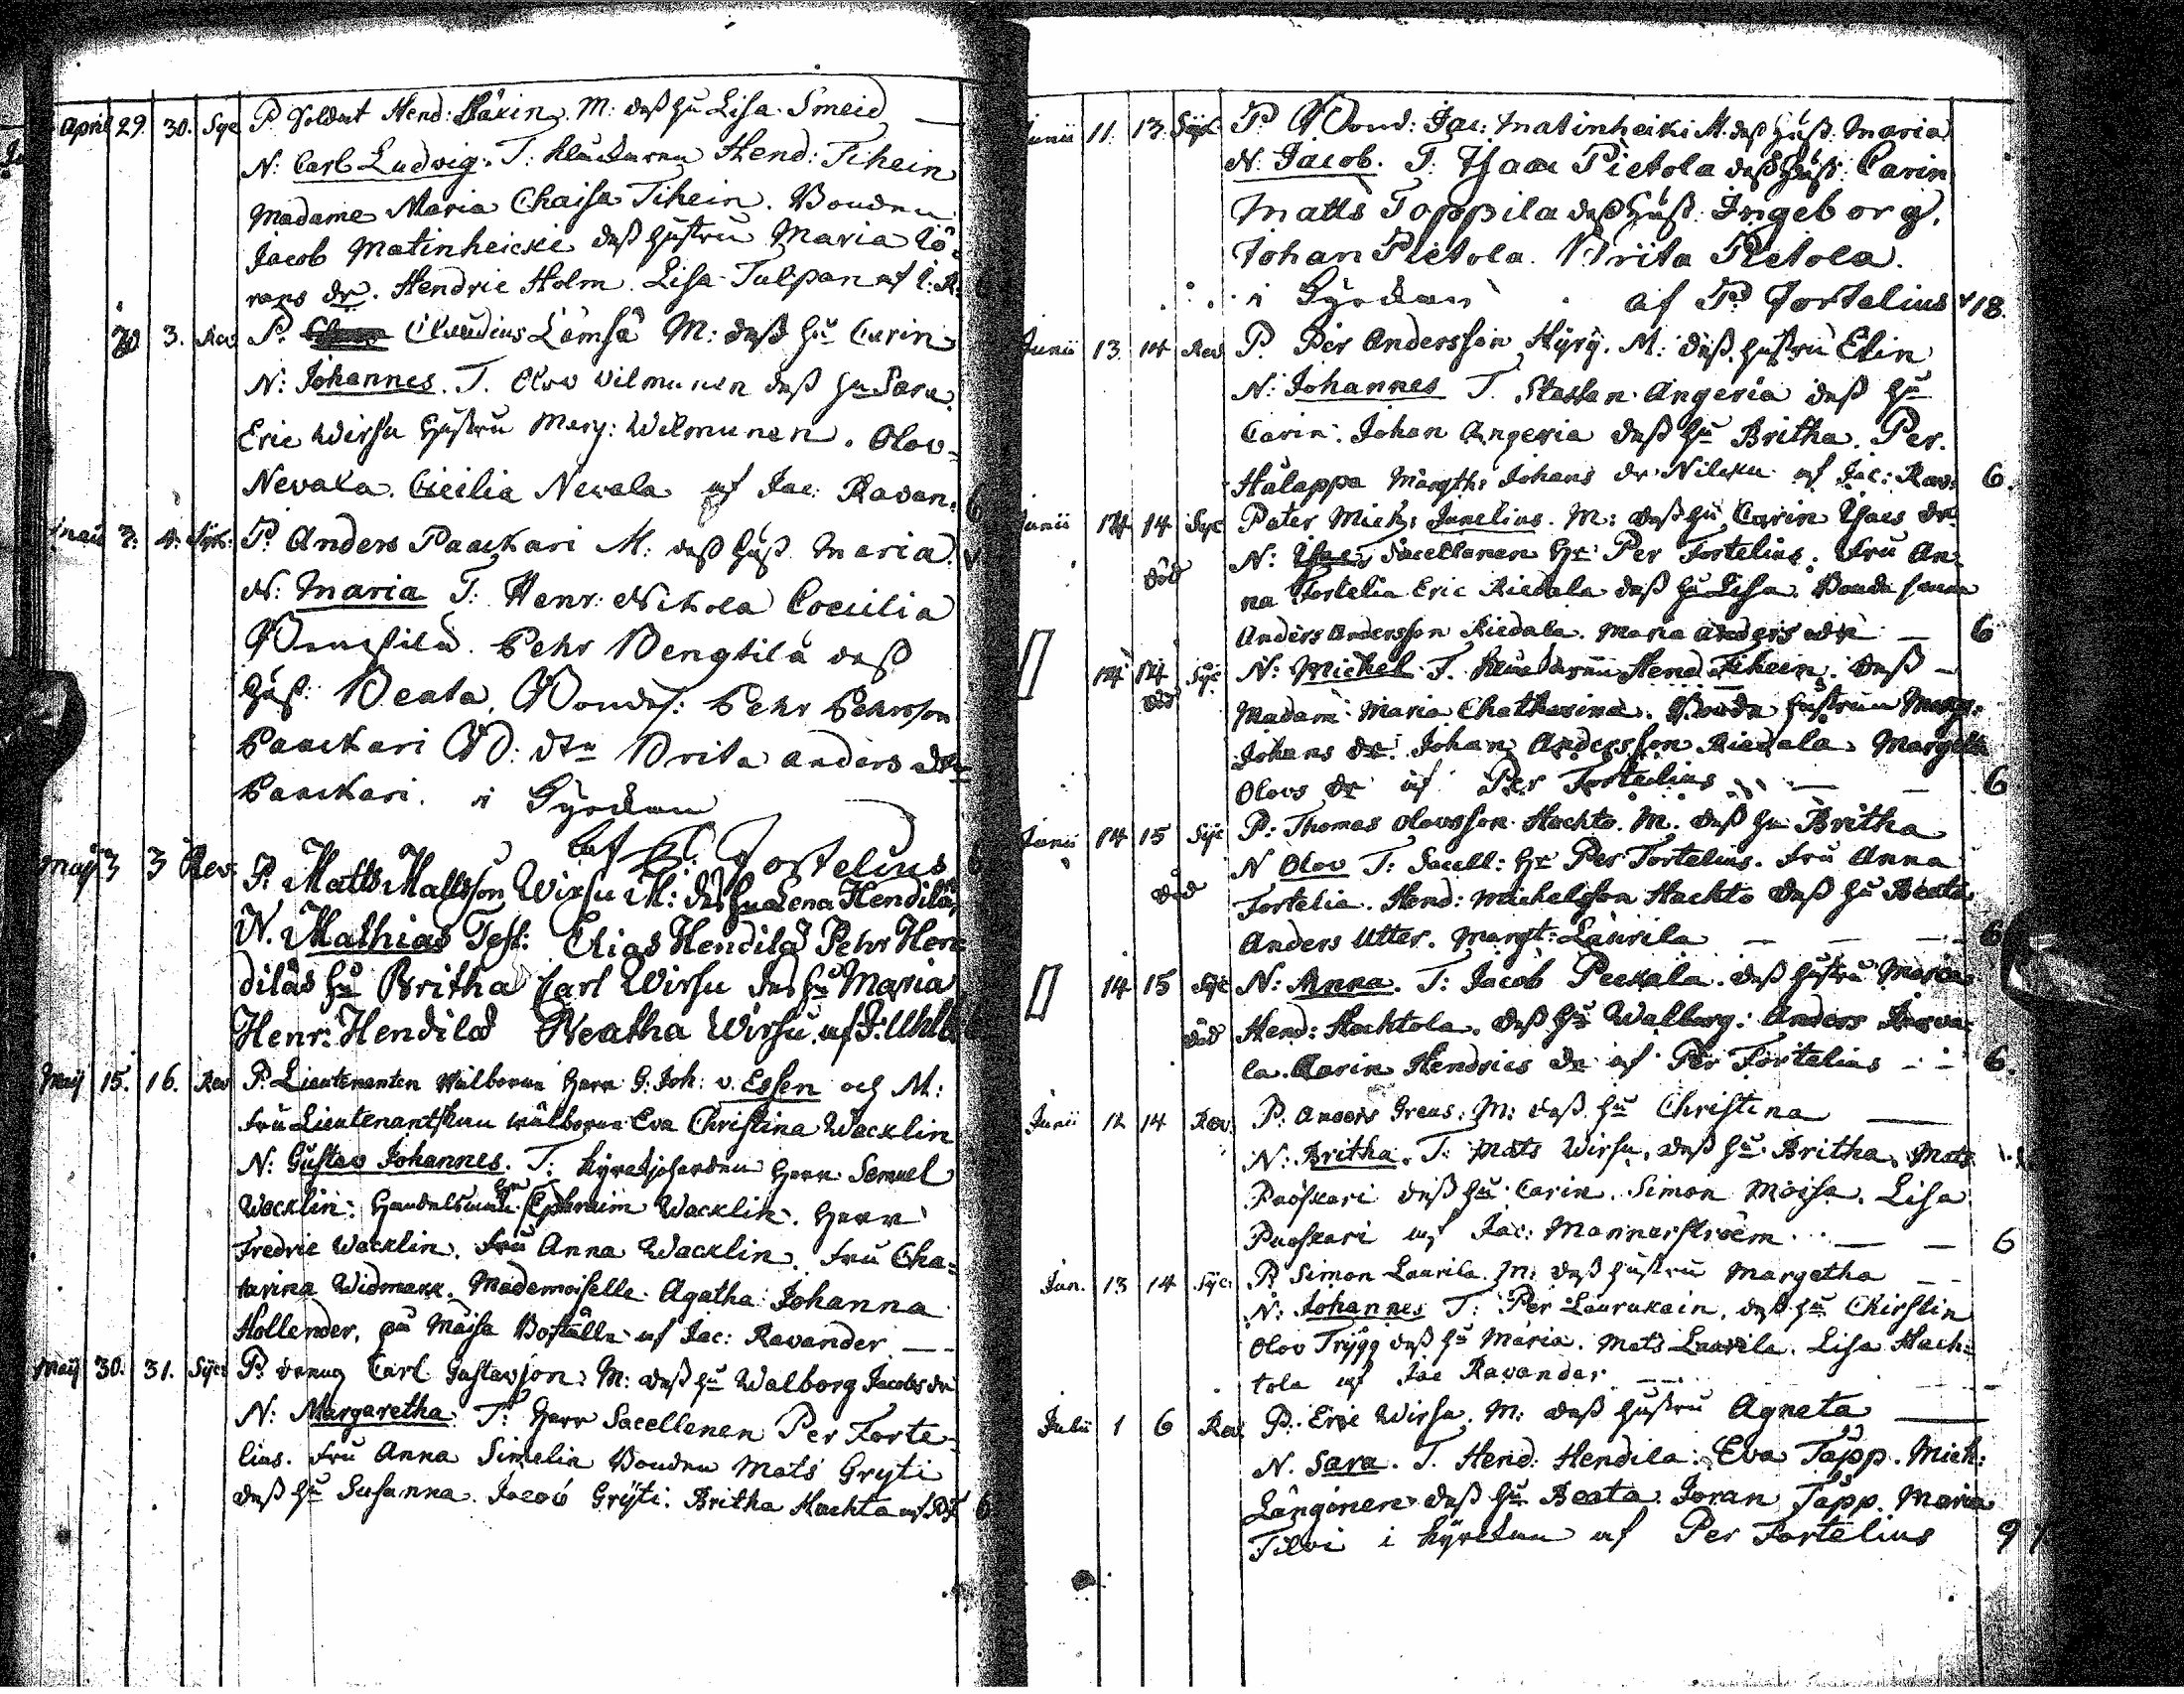 April 29. 30. Sye P. Soldat Hend: Häkin. M: deß hu Lisa Smeid
N: Carl Ludvig. T: Hend: Tihein
Madame Maria Chaisa Tihein. Bonden
Jacob Matinheicki deß hustru Maria Jö-
rans dr. Hendric Holm. Lisa Tulpan af I: R:
30 3. Rev P. Claudius Lämsä M: deß hu Carin
N: Johannes. T. Olov Wilmunen deß hu Sara.
Eric Wirsu hustru Marg: Wilmunen. Olov
Nevala. Cicilia Nevala af Jac: Ravan: 6
maii 3: 4: Syk: P. Anders Paackari M: deß hust Maria.
N: Maria T: Henr: Nikola Coecilia
Pehr Bengtila deß
hust: Beata, Bondes: Pehr Pehrsson
Paackari B: dtr Brita Anders dtr
Paackari. i Gyrckan
af P: Fortelius
Maij 3 3 Rev. P. Matts Mattsson Wirsu M: des hu Lena Hendila,
N. Mathias Test: Elias Hendila Pehr Hen
dilas hu Britha Carl Wirsu des hu Maria
Henr: Hendila Beatha Wirsu. af J: Uhlb
Maij 15. 16. Rev P. Lieutenanten Wälborne Herr G: Joh: v. Essen och M:
Fru Lieutenantskan wälborne Eva Christina Wacklin
N: Gustav Johannes. T: Kyrckjoherden Herr Samuel
Wacklin: Handelsman Hr Ephraim Wacklin. Herr
Fredric Wacklin. Fru Anna Wacklin. Fru Cha=
tarina Widmark. Mademoiselle Agatha Johanna
Hollender, på Maisa Boställe af Jac: Ravander
Maij 30. 31. Syc: P. dräng Carl Gustavson: M: deß hu Walborg Jacobs dr
N: Margaretha T: Herr Sacellanen Per Forte-
lius. Fru Anna Simelia Bonden Mats Gryti
deß hu Susanna. Jacob Gryti. Britha Hachta af P.F. 6
Junii 11. 13. Syk. P. Bond: Jac: Matinheiki M. deß hust. Maria
N: Jacob. T: Isaac Pietola deß hust: Carin
Matts Toppila deß hust: Ingeborg.
Johan Pietola. Brita Pietola.
i Gyrckan af P: Fortelius 18.
Junii 13 14 Rev P. Per Andersson Hyry. M: deß hustru Elin
N: Johannes T. Staffan Angeria deß hu
Carin. Johan Angeria deß hu Britha. Per.
Halappa Margth: Johans dr Nilesu af Jac: Rav: 6.
Junii 14 14 Syc Pater Mich: Junelius. M: deß hu Carin Isacs dr
död N: Isac, Sacellanen Hr Per Fortelius. Fru An
na Fortelia Eric Riedala deß hu Lisa. Bonde sonen
Anders Andersson Riedala. Maria Anders dr 6
14 14 Syc N: Michel T. Hend Tihein. deß
död Madam Maria Chatharina. hustrun Marg:
Johans dr. Johan Andersson Riedala. Margeth
Olovs dr af Per Fortelius 6
Junii 14 15 Syc P: Thomas Olovsson Hachto. M. deß hu Britha
N Olov T: Sacell: Hr Per Fortelius. Fru Anna
död Fortelia. Hend: Michelsson Hachto deß hu Beata.
Anders Utter. Margt: Laurila 6
14 15 Syc N: Anna. T: Jacob Peekala. deß hustru Maria
död Hend: Hachtola. deß hu Walborg: Anders Jurva-
la. Carin Hendrics dr af Per Fortelius 6.
Junii 12 14 Rev. P: Anders Greus: M: deß hu Christina
N: Britha. T: Mats Wirsu. deß hu Britha. Mats
Paoskari deß hu Carin. Simon Moisa. Lisa
Paoskari af Jac: Mannerstroem 6
Jun. 13 14 Syc: P. Simon Laurila. M: deß hustru Margetha
N: Johannes T: Per Laurukain, deß hu Chirstin
Olov Trygg deß hu Maria. Mats Laurila. Lisa Hach=
tola af Jac Ravander
Julii 1 6 Rev P. Eric Wirsu. M: deß hustru Agneta
N. Sara. T. Hend: Hendila: Eva Tapp. Mich:
Långönen deß hu Beata. Joran Tapp. Maria
Tilvi i Kyrckan af Per Fortelius 9